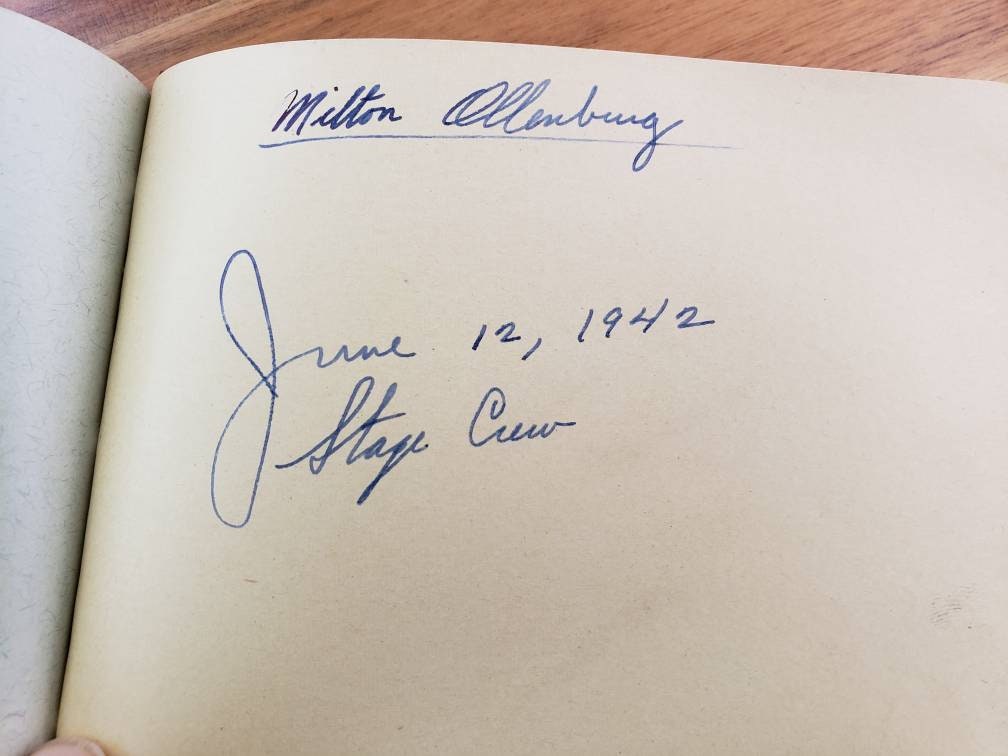 Milton Ollenburg
June 12, 1942
Stage Crew